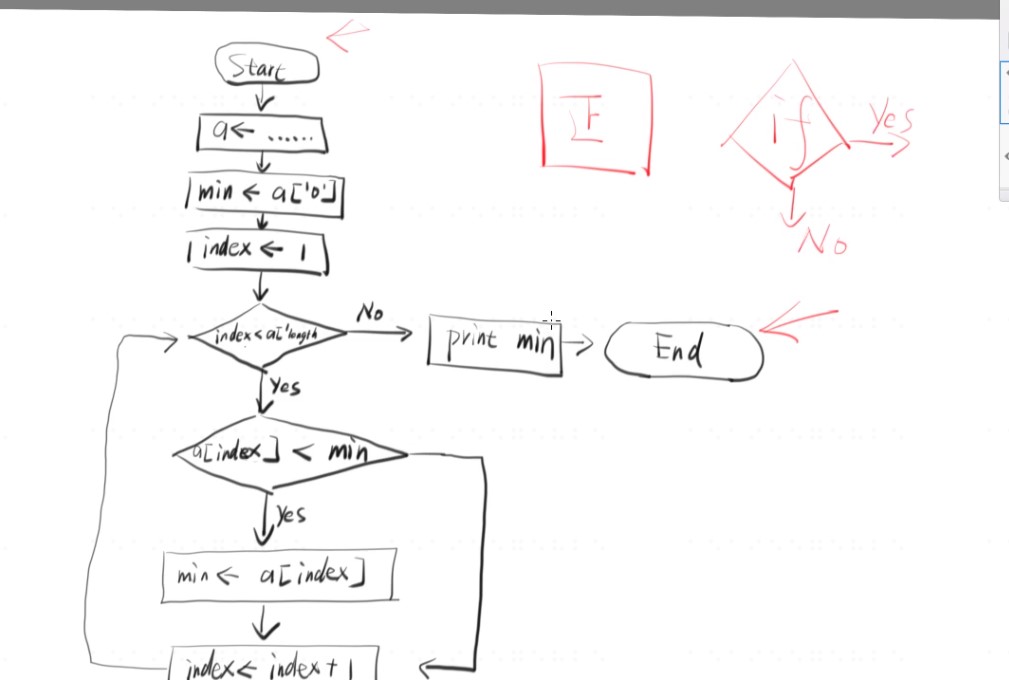 Start
a← ......
min ← a['0']
index ← 1
index<a['length
No
print min
End
Yes
a[index] < min
Yes
min ← a[index]
index← index + 1
if
Yes
No